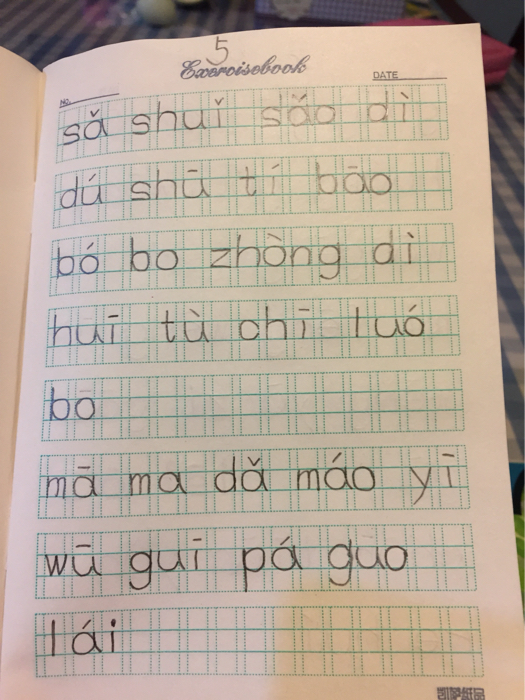 5
Exercisebook
NO.
DATE
sǎ shuǐ sǎo dì
dú shū tí bāo
bó bo zhòng dì
huī tù chī luó
bo
mā ma dǎ máo yī
wū guī pá guo
lái